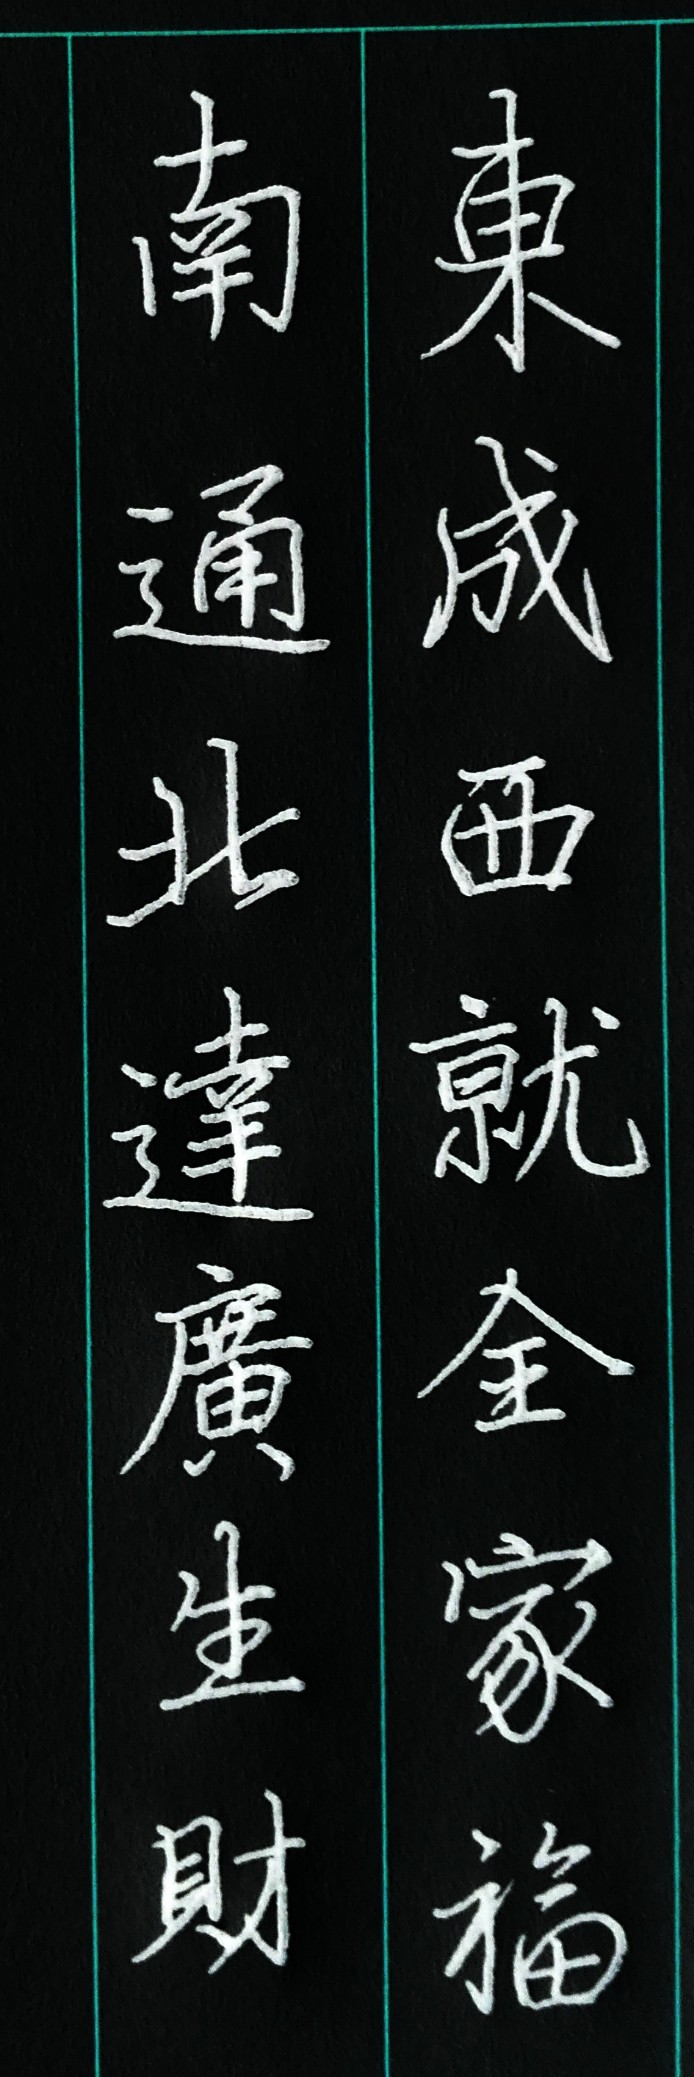 東成西就金家福
南通北達廣生財